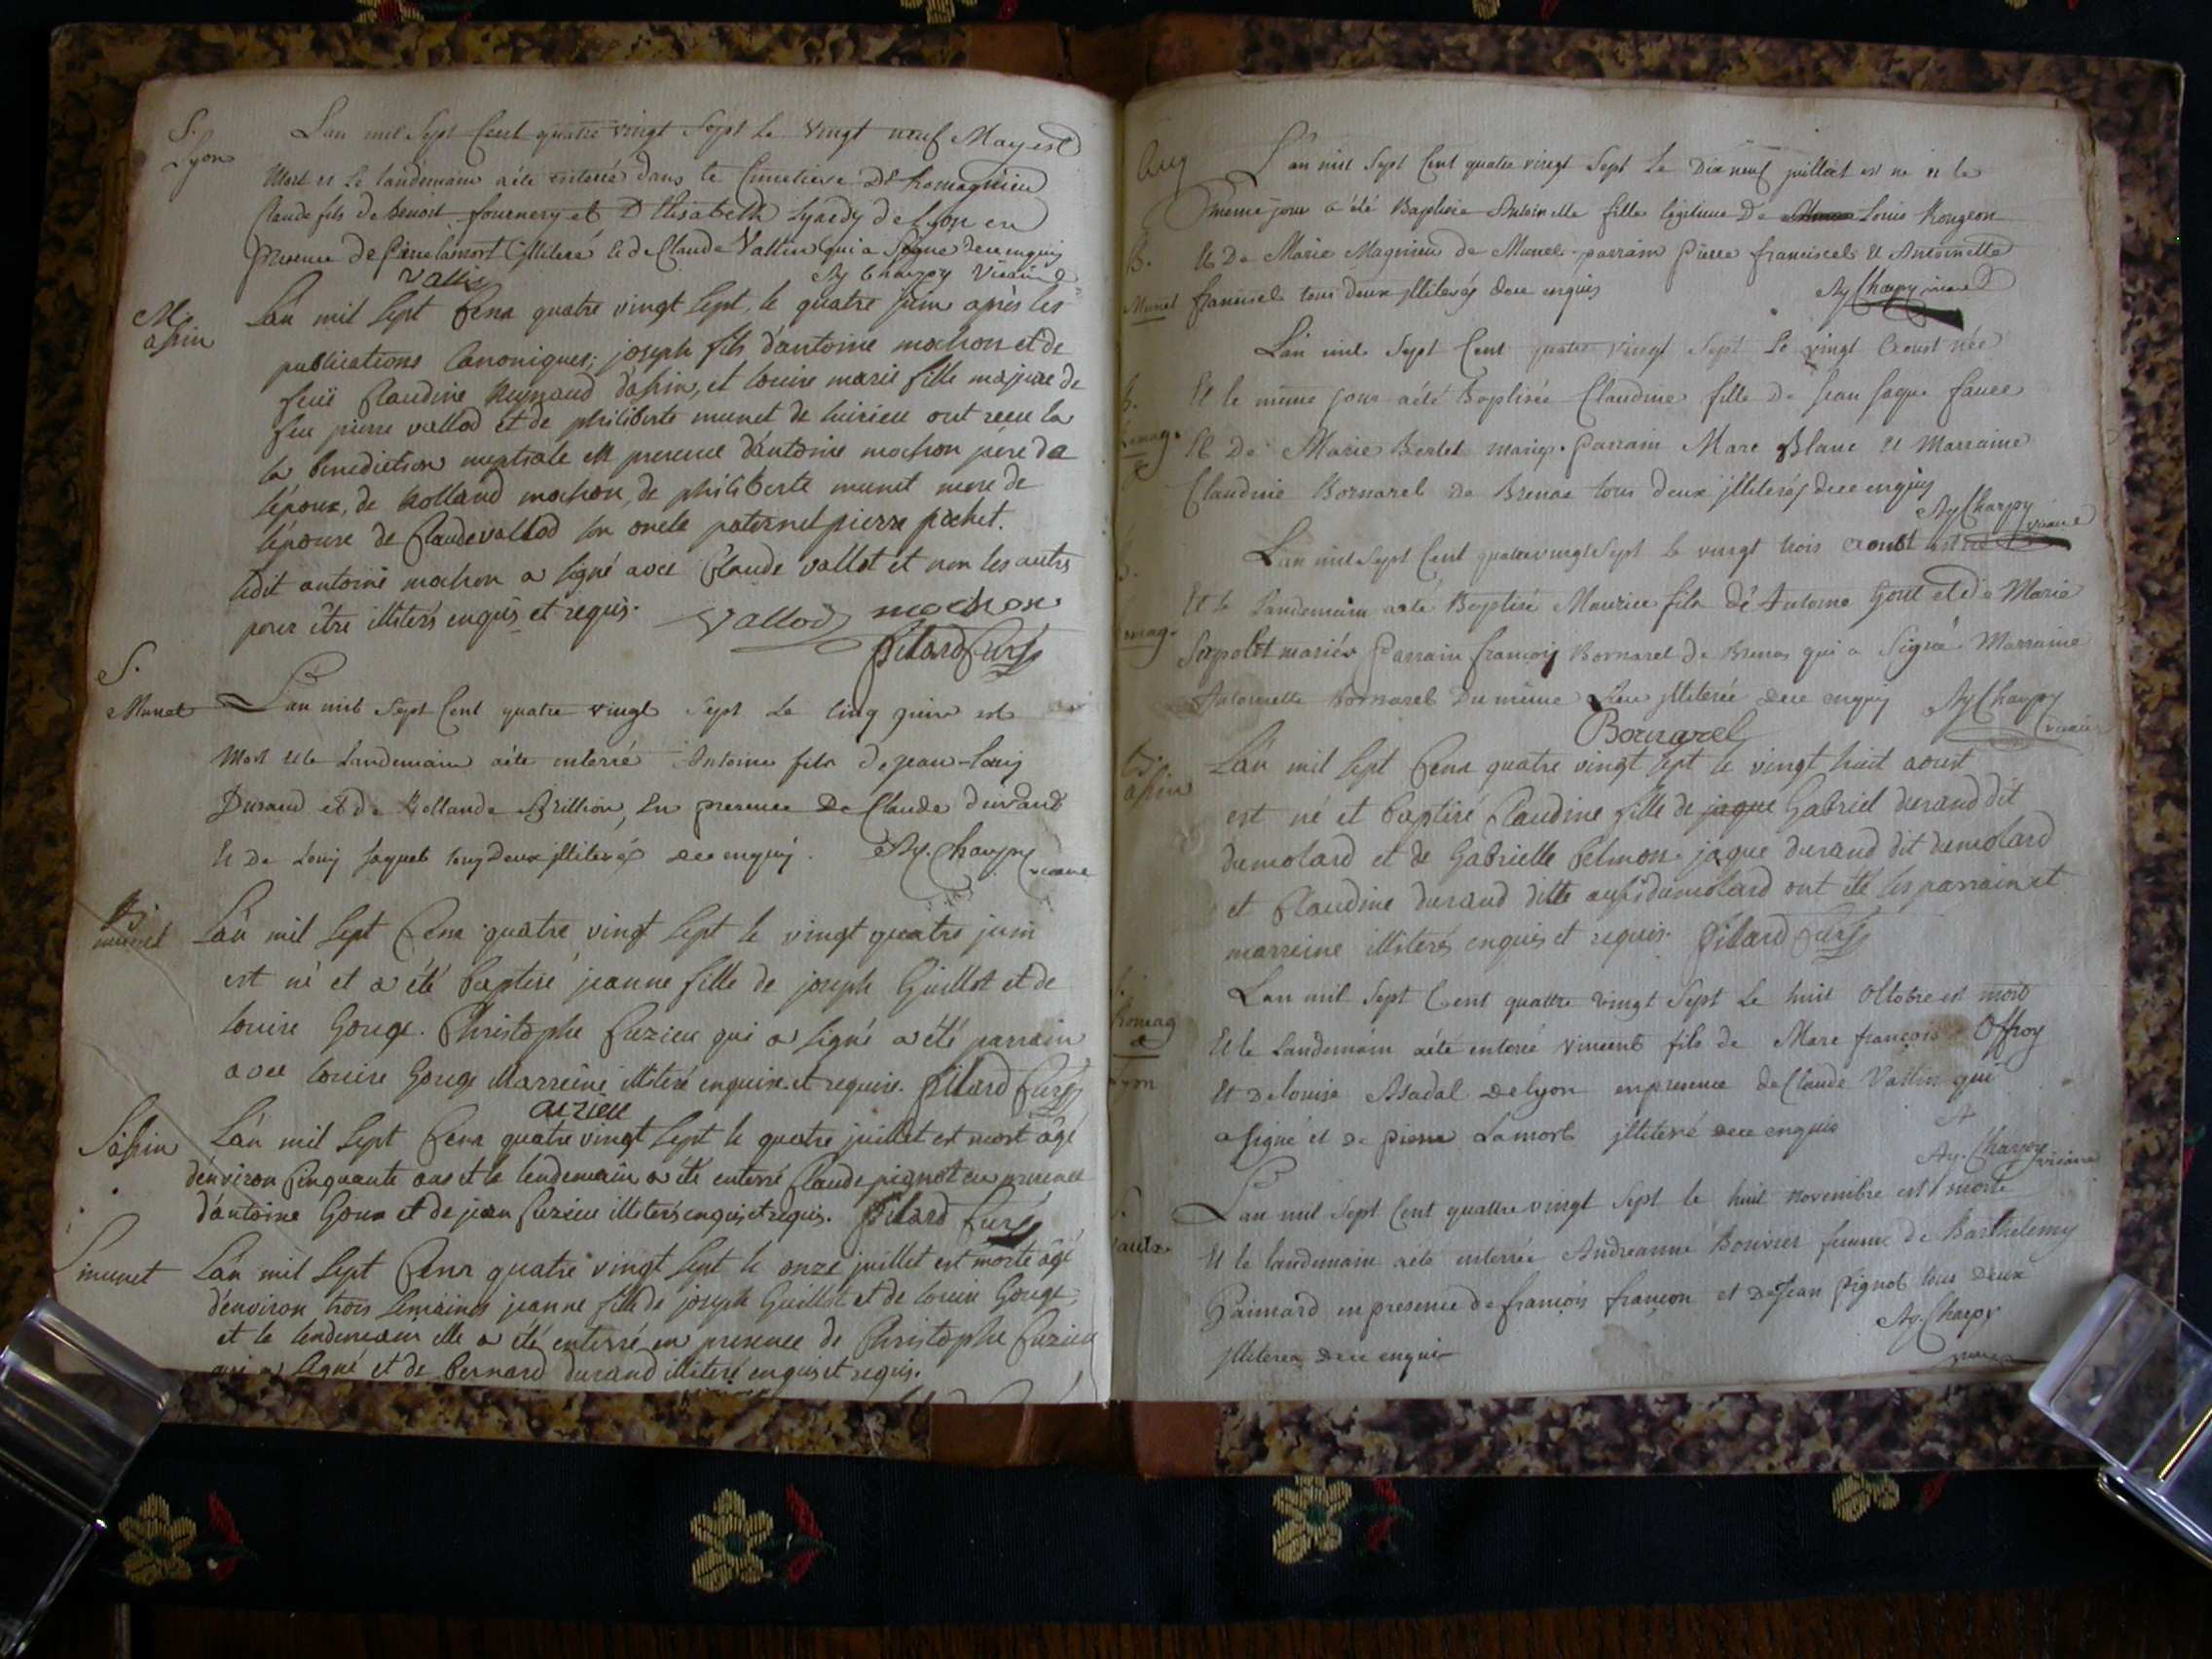 S.
Lyon
L'an mil Sept Cent quatre vingt Sept Le vingt neuf May est
Mort et Le landemain aété enterré dans le Cimetiere De Romagnieu
Claude fils de benoit fournery et D'Elisabeth de Lyon en
presence de Pierre lamort illiteré et de Claude Vallin qui a Signé dece enquis
Vallin
Ay Charpy Vicaire
M.
L'an mil sept Cent quatre vingt sept, le quatre juin après les
publications Canoniques, joseph fils d'antoine mochon et de
feüe Claudine Reynaud et louise marie fille majeure de
feu pierre vallod et de philiberte munet de luirieu ont recu la
la benediction nuptiale en presence d'antoine mochon père de
l'époux, de Rolland mochon, de philiberte munet mere de
l'épouse de Claude vallod son oncle paternel pierre pochet.
ledit antoine mochon a signé avec Claude vallot et non les autres
pour être illiterés enquis et requis.
Vallod mochon
Pilard Curé
S.
Munet
L'an mil Sept Cent quatre vingt Sept Le Cinq juin est
Mort et le landemain aété enterré Antoine fils de jean-Louis
Durand et de Rollande Brillion, en presence De Claude durand
et De Louis jaquet tous deux illiterés dece enquis.
Ay. Charpy vicaire
B.
munet
L'an mil sept Cent quatre vingt sept le vingt quatre juin
est né et a été baptisé jeanne fille de joseph Guillot et de
louise Gouge. Christophe Cuzieu qui a signé a été parrain
avec louise Gouge Marreine illiteré enquise et requise. Pilard Curé
S.
L'an mil sept Cent quatre vingt sept le quatre juillet est mort âgé
d'environ Cinquante ans et le lendemain a été enterré Claude pignot en presence
d'antoine Goux et de jean Cuzieu illiterés enquis et requis. Pilard Curé
S munet
L'an mil sept Cent quatre vingt sept le onze juillet est morte âgé
d'environ trois semaines jeanne fille de joseph Guillot et de louise Gouge,
et le lendemain elle a été enterré en presence de Christophe Cuzieu
qui a signé et de bernard durand illiteré enquis et requis.
L'an mil Sept Cent quatre vingt Sept Le Dix neuf juillet est né et le
même jour a été Baptisée Antoinette fille legitime De Louis Rongeon
B.
Et De Marie Magnieu de Munet parrain Pierre franciscel et Antoinette
Munet
franciscel tous deux illiterés dece enquis
Ay Charpy vicaire
L'an mil Sept Cent quatre vingt Sept Le vingt Aoust née
B.
Et le même jour aété Baptisée Claudine fille De Jean Jaque favre
Et De Marie Berlet mariés. Parrain Marc Blanc et Marraine
Claudine Bornarel De Brenas tous deux illiterés dece enquis
Ay Charpy vicaire
L'an mil Sept Cent quatre vingt Sept Le vingt trois Aoust est né
Et le Landemain aété Baptisé Maurice fils dé Antoine Gout et de Marie
Serpolet mariés Parrain françois Bornarel de Brenas qui a Signé Marraine
Antoinette Bornarel Du même Lieu illiterée dece enquis
Ay Charpy vicaire
Bornarel
B.
L'an mil sept Cent quatre vingt sept le vingt huit aoust
est né et baptisé Claudine fille de jaque Gabriel durand dit
dumolard et de Gabrielle Belmon. jaque durand dit dumolard
et Claudine durand ditte aussi dumolard ont été les parrain et
marreine illiterés enquis et requis. Pilard Curé
Romag
Lyon
L'an mil Sept Cent quattre vingt Sept Le huit Octobre est mort
Et le Landemain aété enterré Vincent fils de Marc françois Offroy
Et De louise Asadal De lyon en presence de Claude Vallin qui
a signé et de pierre Lamort illiteré dece enquis
Ay. Charpy vicaire
L'an mil Sept Cent quattre vingt Sept le huit novembre est morte
Et le landemain aété enterrée Andreanne Bouvier femme de Barthelemy
Paimard en presence de françois françon et De Jean Pignot tous deux
illiteres dece enquis
Ay. Charpy